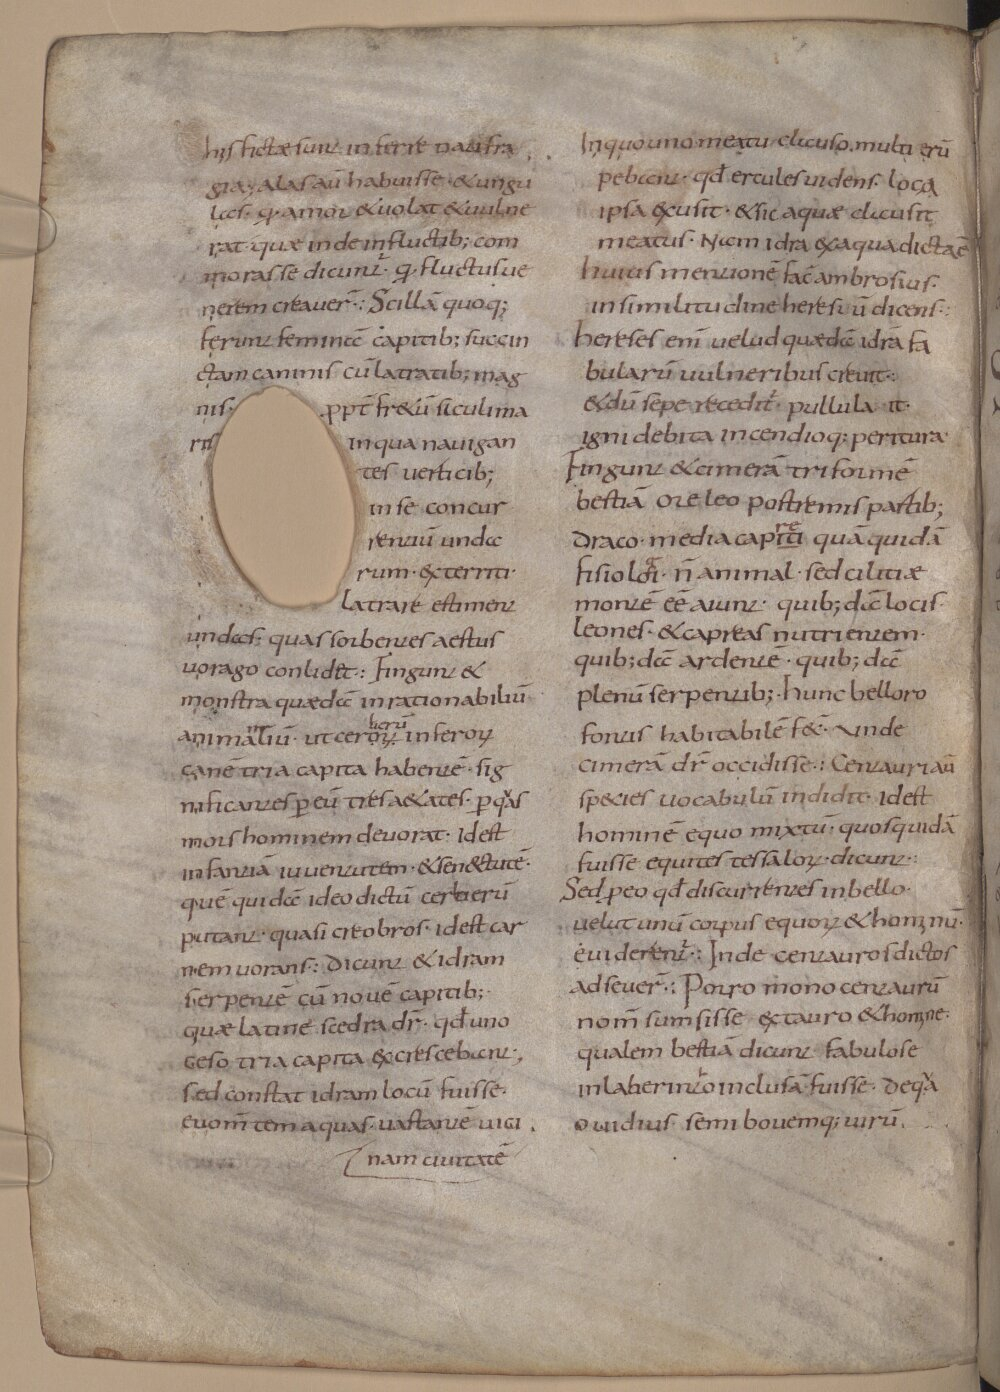 his fictae sunt inferre naufra
gia; alas aū habuisse & ungu
las· q· amor & uolat & uulne
rat· quae inde in fluctib; com
morasse dicunt̄· q· fluctus ue
nerem creauer̄·: Scillā quoq;
ferunt feminā capitib; succin
ctam caninis cū latratib; mag
nis· ꝓpt̄ fr&ū siculi ma
ris in qua nauigan
tes uerticib;
in se concur
rentiū unda
rum· exterriti·
latrare estiment
undas· quas sorbentes aestus
uorago conlidet·: Fingunt &
monstra quaedā inrationabiliū
animāliū· ut cerberū inferoꝝ
canē tria capita habentē· sig
nificantes ꝑ eū tres a&ates· ꝑ qas
mors hominem deuorat· idest
infantiā iuuentutem· & sen&utē·
quē quidā ideo dictū cerberū
putant· quasi creobros· idest car
nem uorans·: Dicunt & idram
serpentē cū nouē capitib;
quae latine scedra dr̄· qd̄ uno
ceso tria capita excrescebant·,
sed constat idram locū fuisse·
euom̄tem aquas· uastantē uici
nam ciuitatē
In quo uno meatu clauso· multi erū
pebant· qd̄ ercules uidens· loca
ipsa exusit· & sic aquae clausit
meatus· Nam idra ex aqua dicta ē
huius mentionē fac̄ ambrosius·
in similitudine heresiū dicens·:
hereses enī uelud quaedā idra fa
bularū uulneribus creuit·:
& dū sepe recedit̄ pullulauit·
igni debita incendioq; peritura
Fingunt & cimerā triformē
bestiā ore leo postremis partib;
draco· media caprea quā quidā
fisiologi· n̄ animal· sed cilitiae
montē eē aiunt· quib;dā locis·
leones· & capreas nutrientem·
quib;dā ardentē· quib;dā
plenū serpentib;· hunc belloro
fontis habitabilē fec̄· unde
cimerā dr̄ occidisse·: Centauri aū
species uocabulū indidit· idest
hominē equo mixtū· quos quidā
fuisse equites tessaloꝝ· dicunt·:
Sed ꝑeo qd̄ discurrentes in bello·
uelut unū corpus equoꝝ & hominū·
euiderent̄·: Inde centauros dictos
adseuer̄·: Porro monocentaurū
nom̄ sumsisse ex tauro & homine·
qualem bestiā dicunt fabulose
in laberinto inclusā fuisse· de qa
ouidius· semi bouemq; uirū·